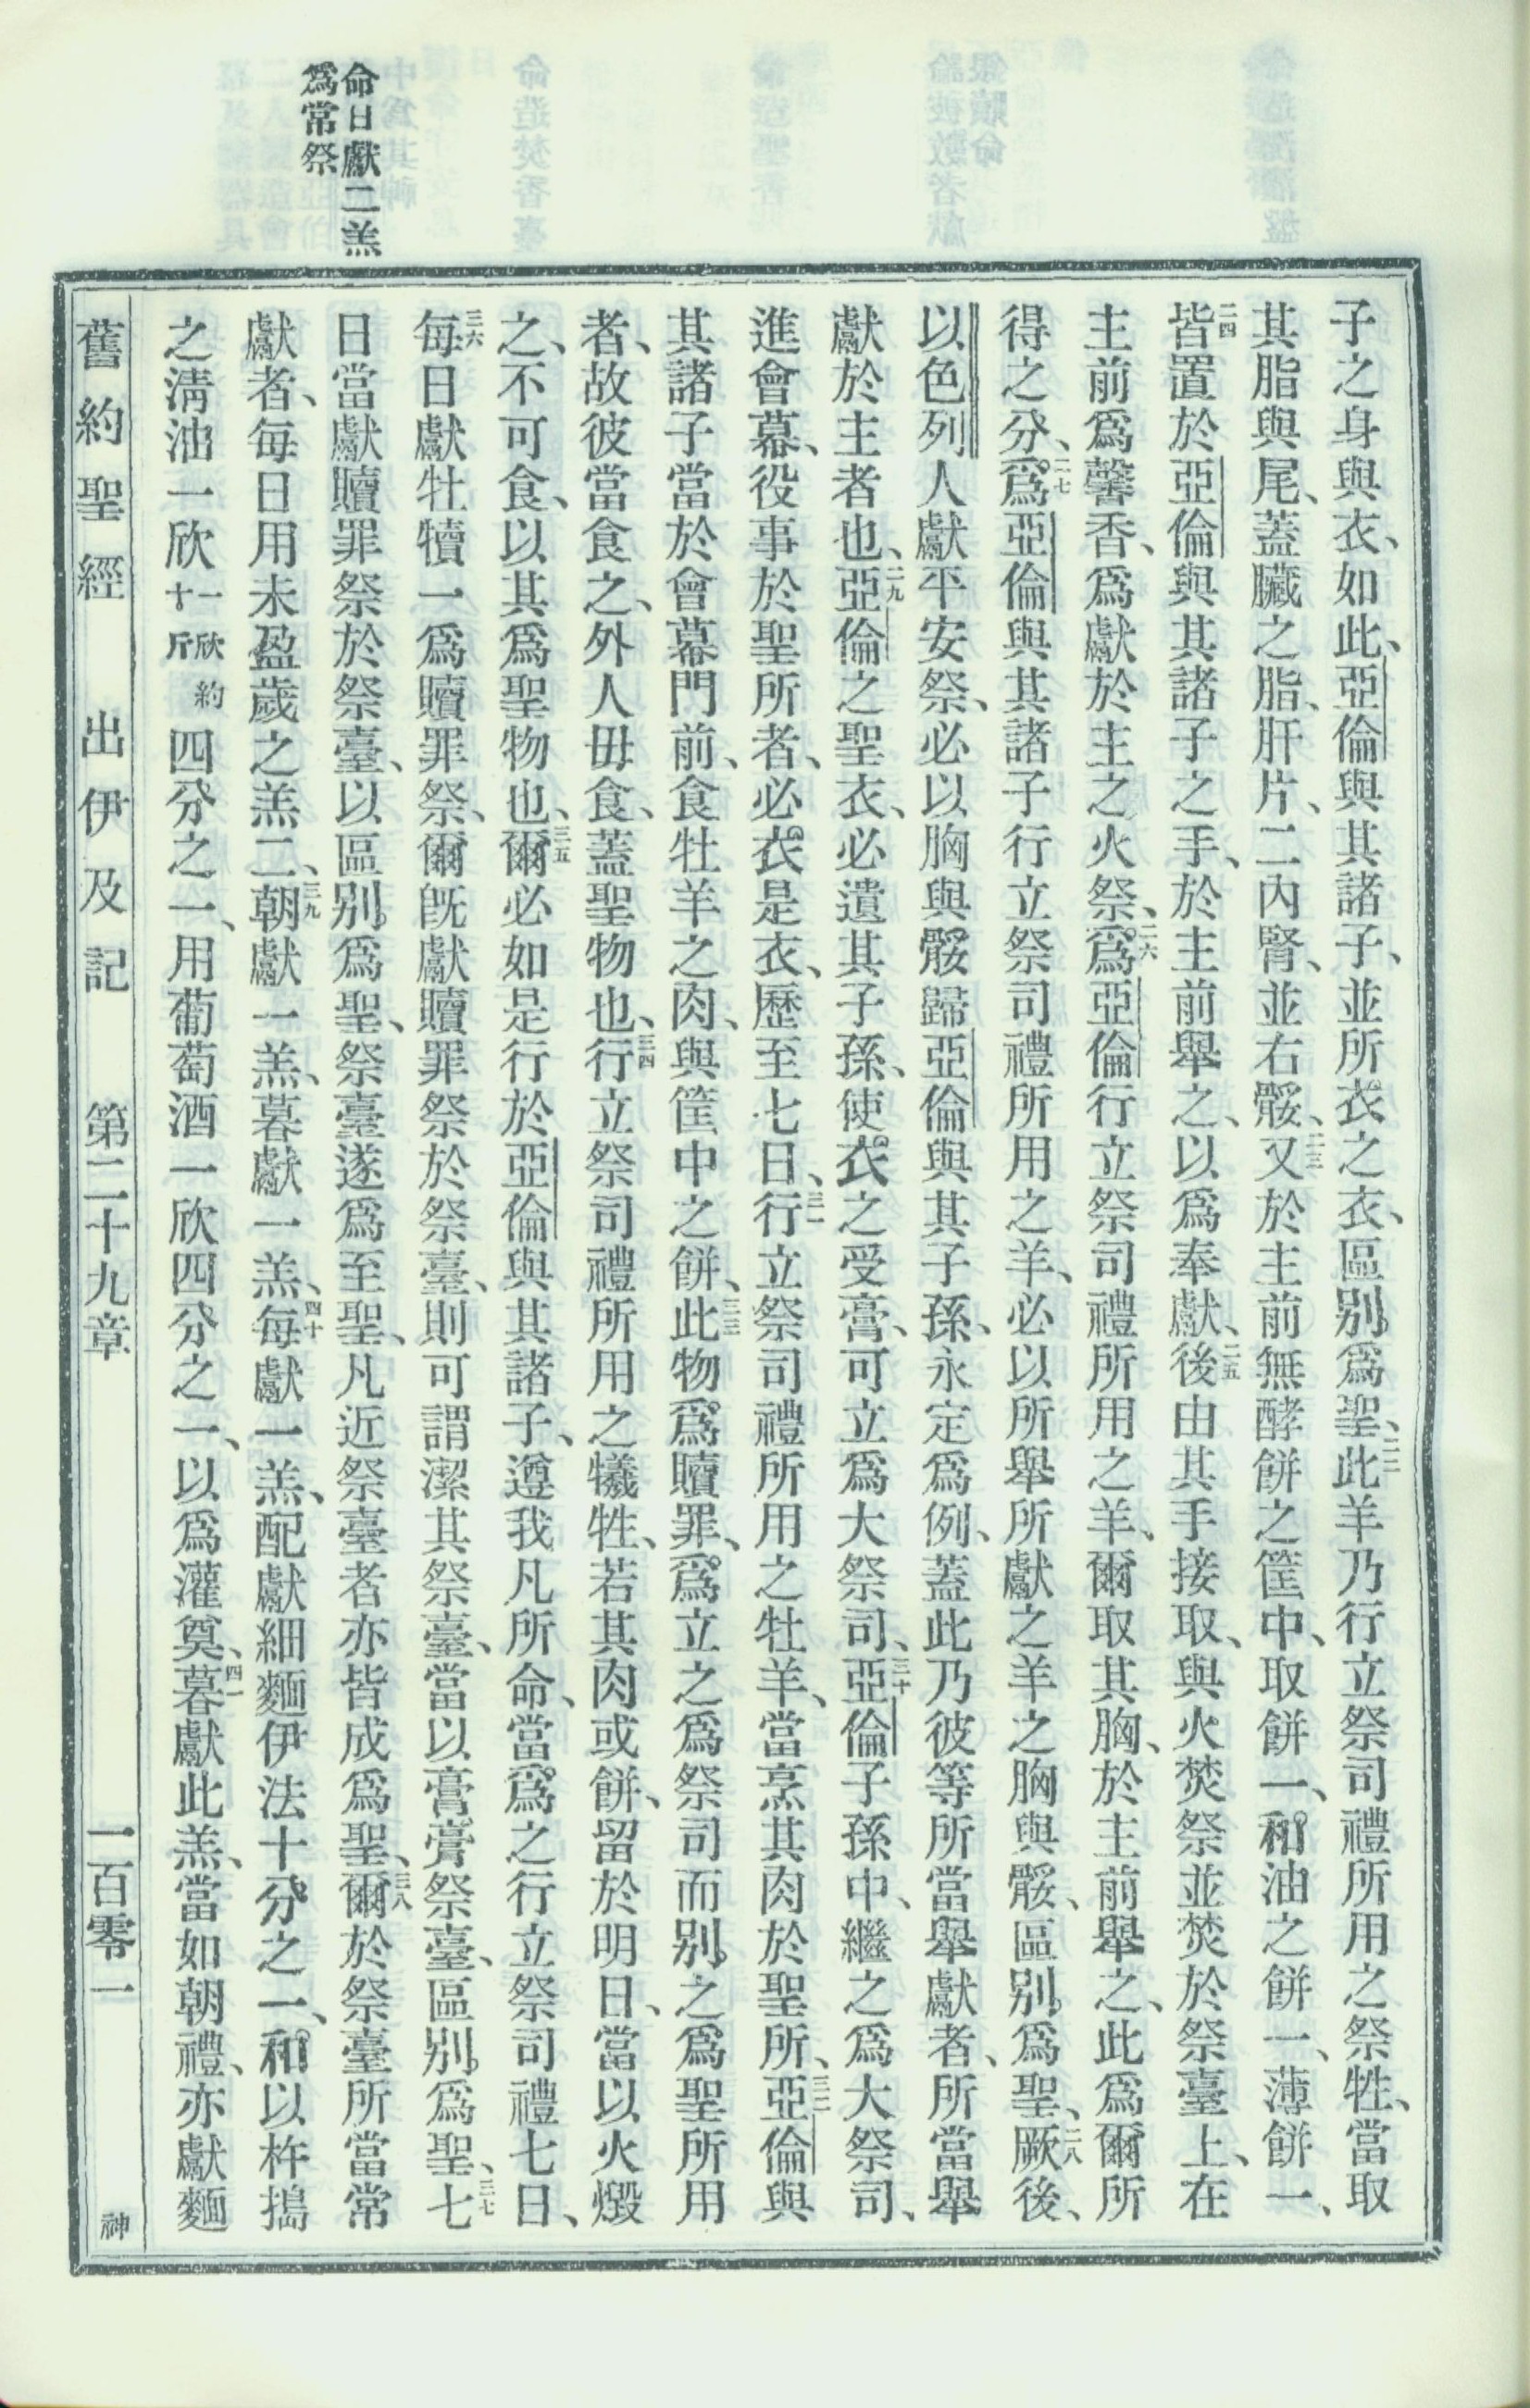 命日獻二羔
爲常祭
子之身與衣、如此、亞倫與其諸子、並所衣之衣、區别爲聖、二二此羊乃行立祭司禮所用之祭牲、當取
其脂與尾、蓋臟之脂、肝片、二內腎、並右骽、二三又於主前無酵餅之筐中、取餅一、和油之餅一、薄餅一、
二四皆置於亞倫與其諸子之手、於主前舉之、以爲奉獻、二五後由其手接取、與火焚祭並焚於祭臺上、在
主前爲馨香、爲獻於主之火祭、二六爲亞倫行立祭司禮所用之羊、爾取其胸、於主前舉之、此爲爾所
得之分、二七爲亞倫與其諸子行立祭司禮所用之羊、必以所舉所獻之羊之胸與骽、區别爲聖、二八厥後、
以色列人獻平安祭、必以胸與骽歸亞倫與其子孫、永定爲例、蓋此乃彼等所當舉獻者、所當舉
獻於主者也、二九亞倫之聖衣、必遺其子孫、使衣之受膏、可立爲大祭司、三十亞倫子孫中、繼之爲大祭司、
進會幕、役事於聖所者、必衣是衣、歷至七日、三一行立祭司禮所用之牡羊、當烹其肉於聖所、三二亞倫與
其諸子當於會幕門前、食牡羊之肉、與筐中之餅、三三此物爲贖罪、爲立之爲祭司而别之爲聖所用
者、故彼當食之、外人毋食、蓋聖物也、三四行立祭司禮所用之犧牲、若其肉或餅、留於明日、當以火燬
之、不可食、以其爲聖物也、三五爾必如是行於亞倫與其諸子、遵我凡所命、當爲之行立祭司禮七日、
三六每日獻牡犢一爲贖罪祭、爾旣獻贖罪祭於祭臺、則可謂潔其祭臺、當以膏膏祭臺、區别爲聖、三七七
日當獻贖罪祭於祭臺、以區别爲聖、祭臺遂爲至聖、凡近祭臺者亦皆成爲聖、三八爾於祭臺所當常
獻者、每日用未盈歲之羔二、三九朝獻一羔、暮獻一羔、四十每獻一羔、配獻細麵伊法十分之一、和以杵搗
之淸油一欣一欣約十斤四分之一、用葡萄酒一欣四分之一、以爲灌奠、四一暮獻此羔、當如朝禮、亦獻麵
舊約聖經　出伊及記　第二十九章　一百零一　神